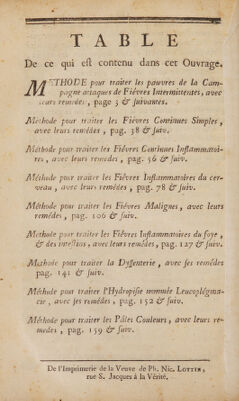 TABLE
De ce qui est contenu dans cet Ouvrage.
METHODE pour traiter les pauvres de la Cam-
pagne attaqués de Fiévres Intermittentes, avec
leurs remédes, page 5 & suivantes.
Méthode pour traiter les Fiévres Continues Simples,
avec leurs remédes, pag. 38 & suiv.
Méthode pour traiter les Fiévres Continues Inflammatoi-
res, avec leurs remédes, pag. 56 & suiv.
Méthode pour traiter les Fiévres Inflammatoires du cer-
veau, avec leurs remédes, pag. 78 & suiv.
Méthode pour traiter les Fiévres Malignes, avec leurs
remédes, pag. 106 & suiv.
Méthode pour traiter les Fiévres Inflammatoires du foye,
& des intestins, avec leurs remédes, pag. 127 & suiv.
Méthode pour traiter la Dyssenterie, avec ses remédes
pag. 141 & suiv.
Méthode pour traiter l'Hydropisie nommée Leucoplégma-
cie, avec ses remédes, pag. 152 & suiv.
Méthode pour traiter les Pâles Couleurs, avec leurs re-
médes, pag. 159 & suiv.
De l'Imprimerie de la Veuve de Ph. Nic. LOTTIN,
rue S. Jacques à la Vérité.